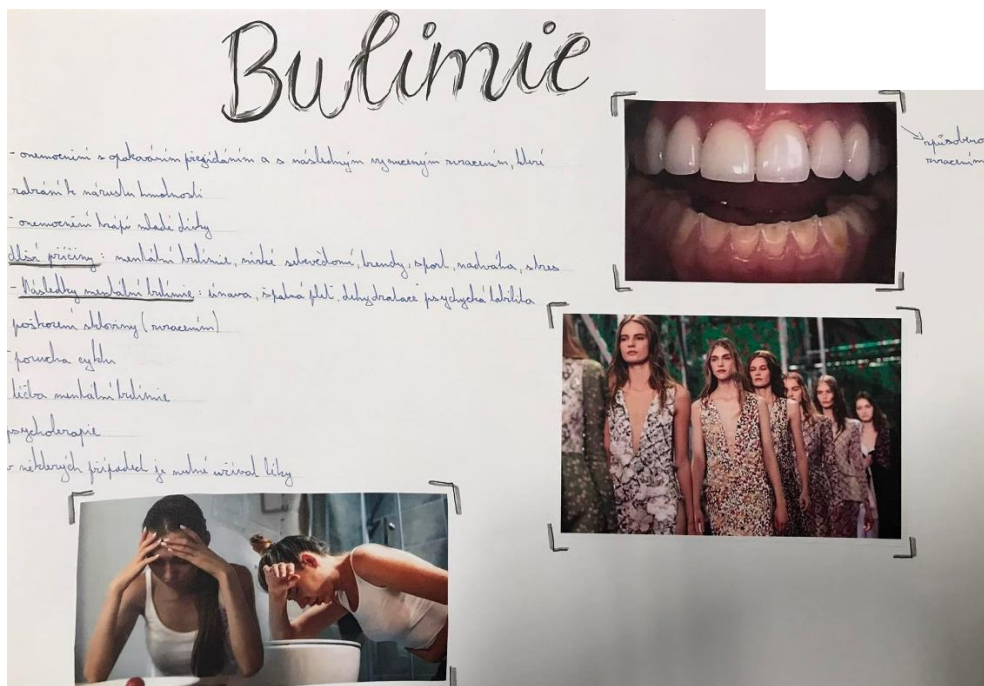 Bulimie
- onemocnění s opakováním přejídáním a s následným vynuceným zvracením, které
zabrání k nárůstu hmotnosti
- onemocnění trápí mladé dívky
dlší příčiny: mentální bulimie, nízké sebevědomí, trendy, sport, nadváha, stres
- Následky mentální bulimie: únava, špatná pleť, dehydratace psychycká labilita
poškození skloviny (zvracením)
- porucha cyklu
léčba mentální bulimie
psychoterapie
v některých případech je nutné užívat léky
způsobeno
zvracením